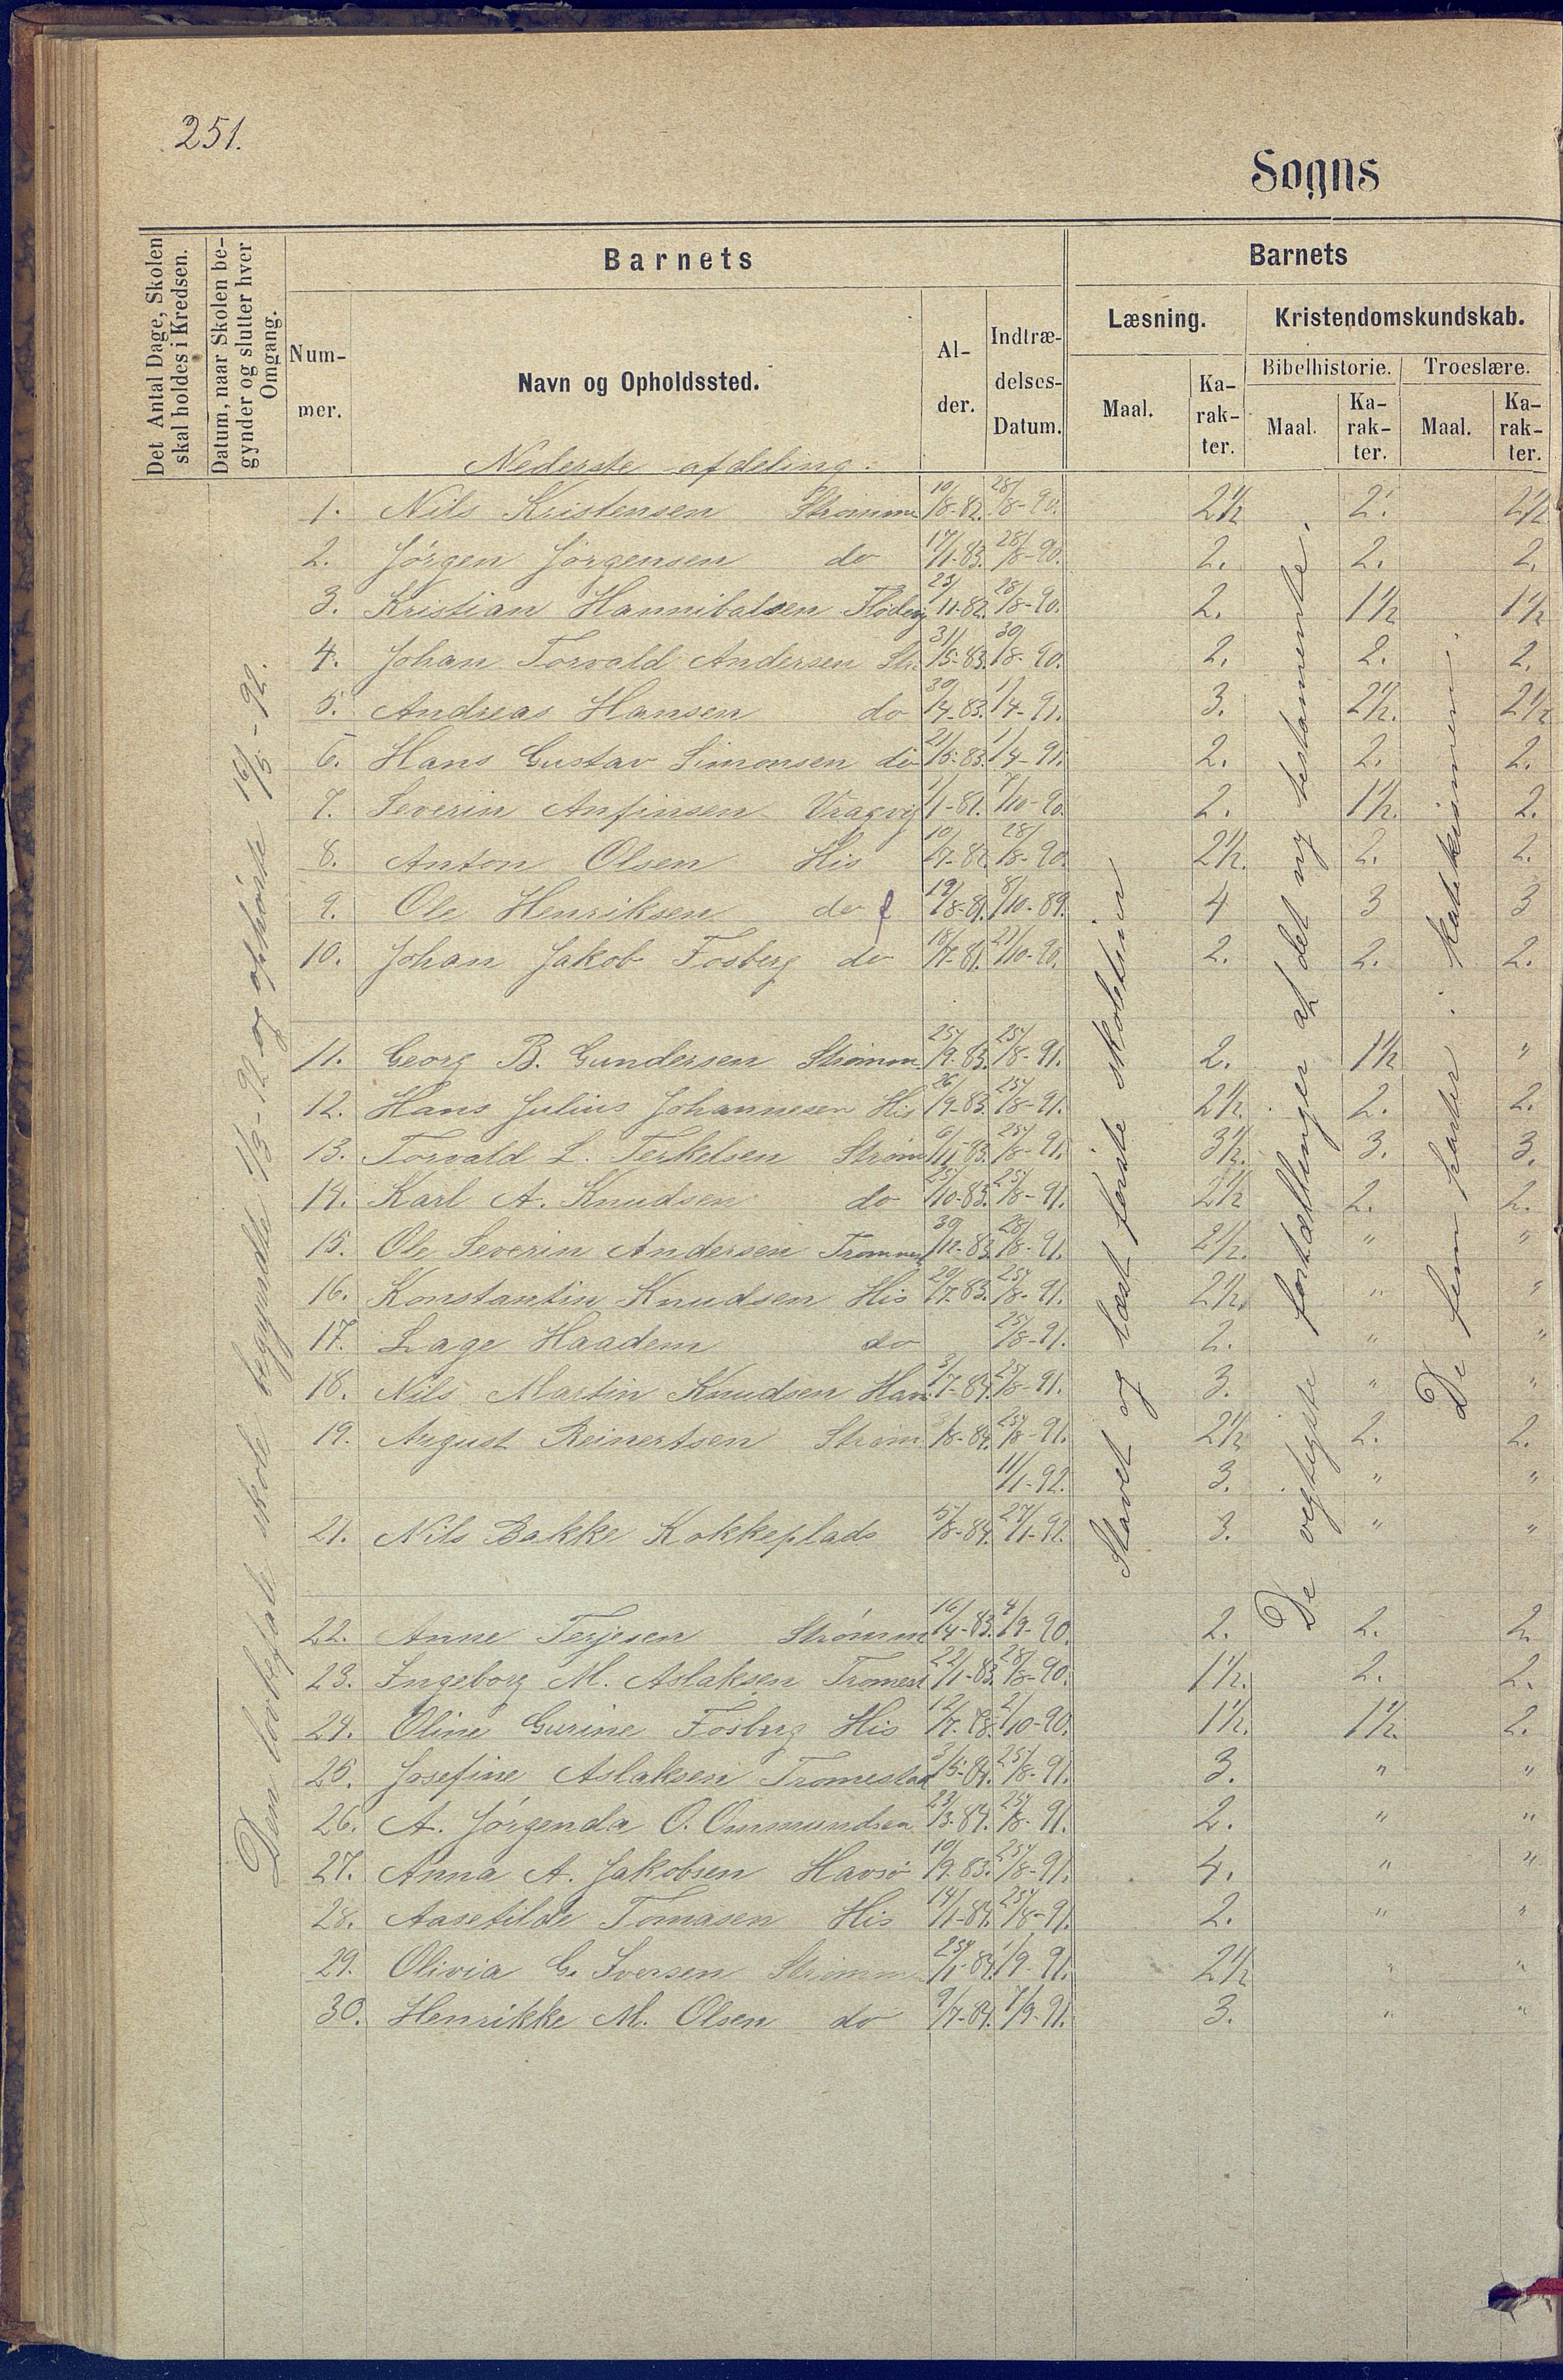 251.
Sogns
Det Antal Dage, Skolen
skal holdes i Kredsen.
Datum, naar Skolen be-
gynder og slutter hver
Omgang.
Barnets
Num-
mer.
Navn og Opholdssted.
Al-
der.
Indtræ-
delses-
Datum.
Barnets
Læsning.
Maal.
Ka-
rak-
ter.
Kristendomskundskab.
Bibelhistorie.
Maal.
Ka-
rak-
ter.
Troeslære.
Maal.
Ka-
rak-
ter.
Nederste afdeling.
1. Nils Kristensen Strømm 10/8-82. 28/8-90. 2½ 2. 2½
2. Jørgen Jørgensen do 17/1-83. 28/8-90. 2. 2. 2.
3. Kristian Hannibalsen Flødevig 23/11-82. 28/8-90. 2. 1½ 1½
4. Johan Torvald Andersen Str. 31/5-83. 30/8-90. 2. 2. 2.
5. Andreas Hansen do 30/4-83. 1/4-91. 3. 2½. 2½
6. Hans Gustav Simonsen do 21/5-83. 1/4-91. 2. 2. 2.
7. Severin Anfinsen Vragvig 1/1-81. 7/10-90. 2. 1½. 2.
8. Anton Olsen His 10/7-82. 28/8-90. 2½. 2. 2.
9. Ole Henriksen do 19/8-81. 8/10-89. 4 3 3
10. Johan Jakob Fosberg do 18/7-81. 27/10-90. 2. 2. 2.
11. Georg B. Gundersen Strømm 25/9-83. 25/8-91. 2. 1½ "
12. Hans Julius Johannesen His 26/9-83. 25/8-91. 2½. 2. 2.
13. Torvald L. Terkelsen Strøm 6/11-83. 25/8-91. 3½. 3. 3.
14. Karl A. Knudsen do 25/10-83. 25/8-91. 2½ 2. 2.
15. Ole Severin Andersen 30/12-83. 28/8-91. 2½. " "
16. Konstantin Knudsen His 29/7-83. 25/8-91. 2½. " "
17. Lage Haadem do 25/8-91. 2. " "
18. Nils Martin Knudsen Hav. 3/7-84. 25/8-91. 3. " "
19. August Reinertsen Strøm /8-84. 25/8-91. 2½ 2. 2.
11/1-92. 3. " "
21. Nils Bakke Kokkeplads 5/8-84. 27/1-92. 3. " "
22. Anne Terjesen Strømm 16/4-83. 4/9-90. 2. 2. 2
23. Ingeborg M. Aslaksen Tromest 22/1-83. 28/8-90. 1½. 2. 2.
24. Oline Gurine Fosberg His 12/7- 2/10-90. 1½. 1½. 2.
25. Josefine Aslaksen Tromestad 3/5-84. 25/8-91. 3. " "
26. A. Jørgenda O. Ommundsen 23/3-84. 25/8-91. 2. " "
27. Anna A. Jakobsen Havsø 10/9-83. 25/8-91. 4. " "
28. Aasetilde Tomasen His 14/1-84. 25/8-91. 2. " "
29. Olivia G. Iversen Strømm 25/1-84. 1/9-91. 2½ " "
30. Henrikke M. Olsen do 9/7-84. 7/9-91. 3. " "
Den lovbefalte skole begyndte 1/3-92 og ophørte 16/5-92.
Stavet og læst første skoletrin
De vigtigste fortællinger af det ny testamente.
De fem parter i katekismen